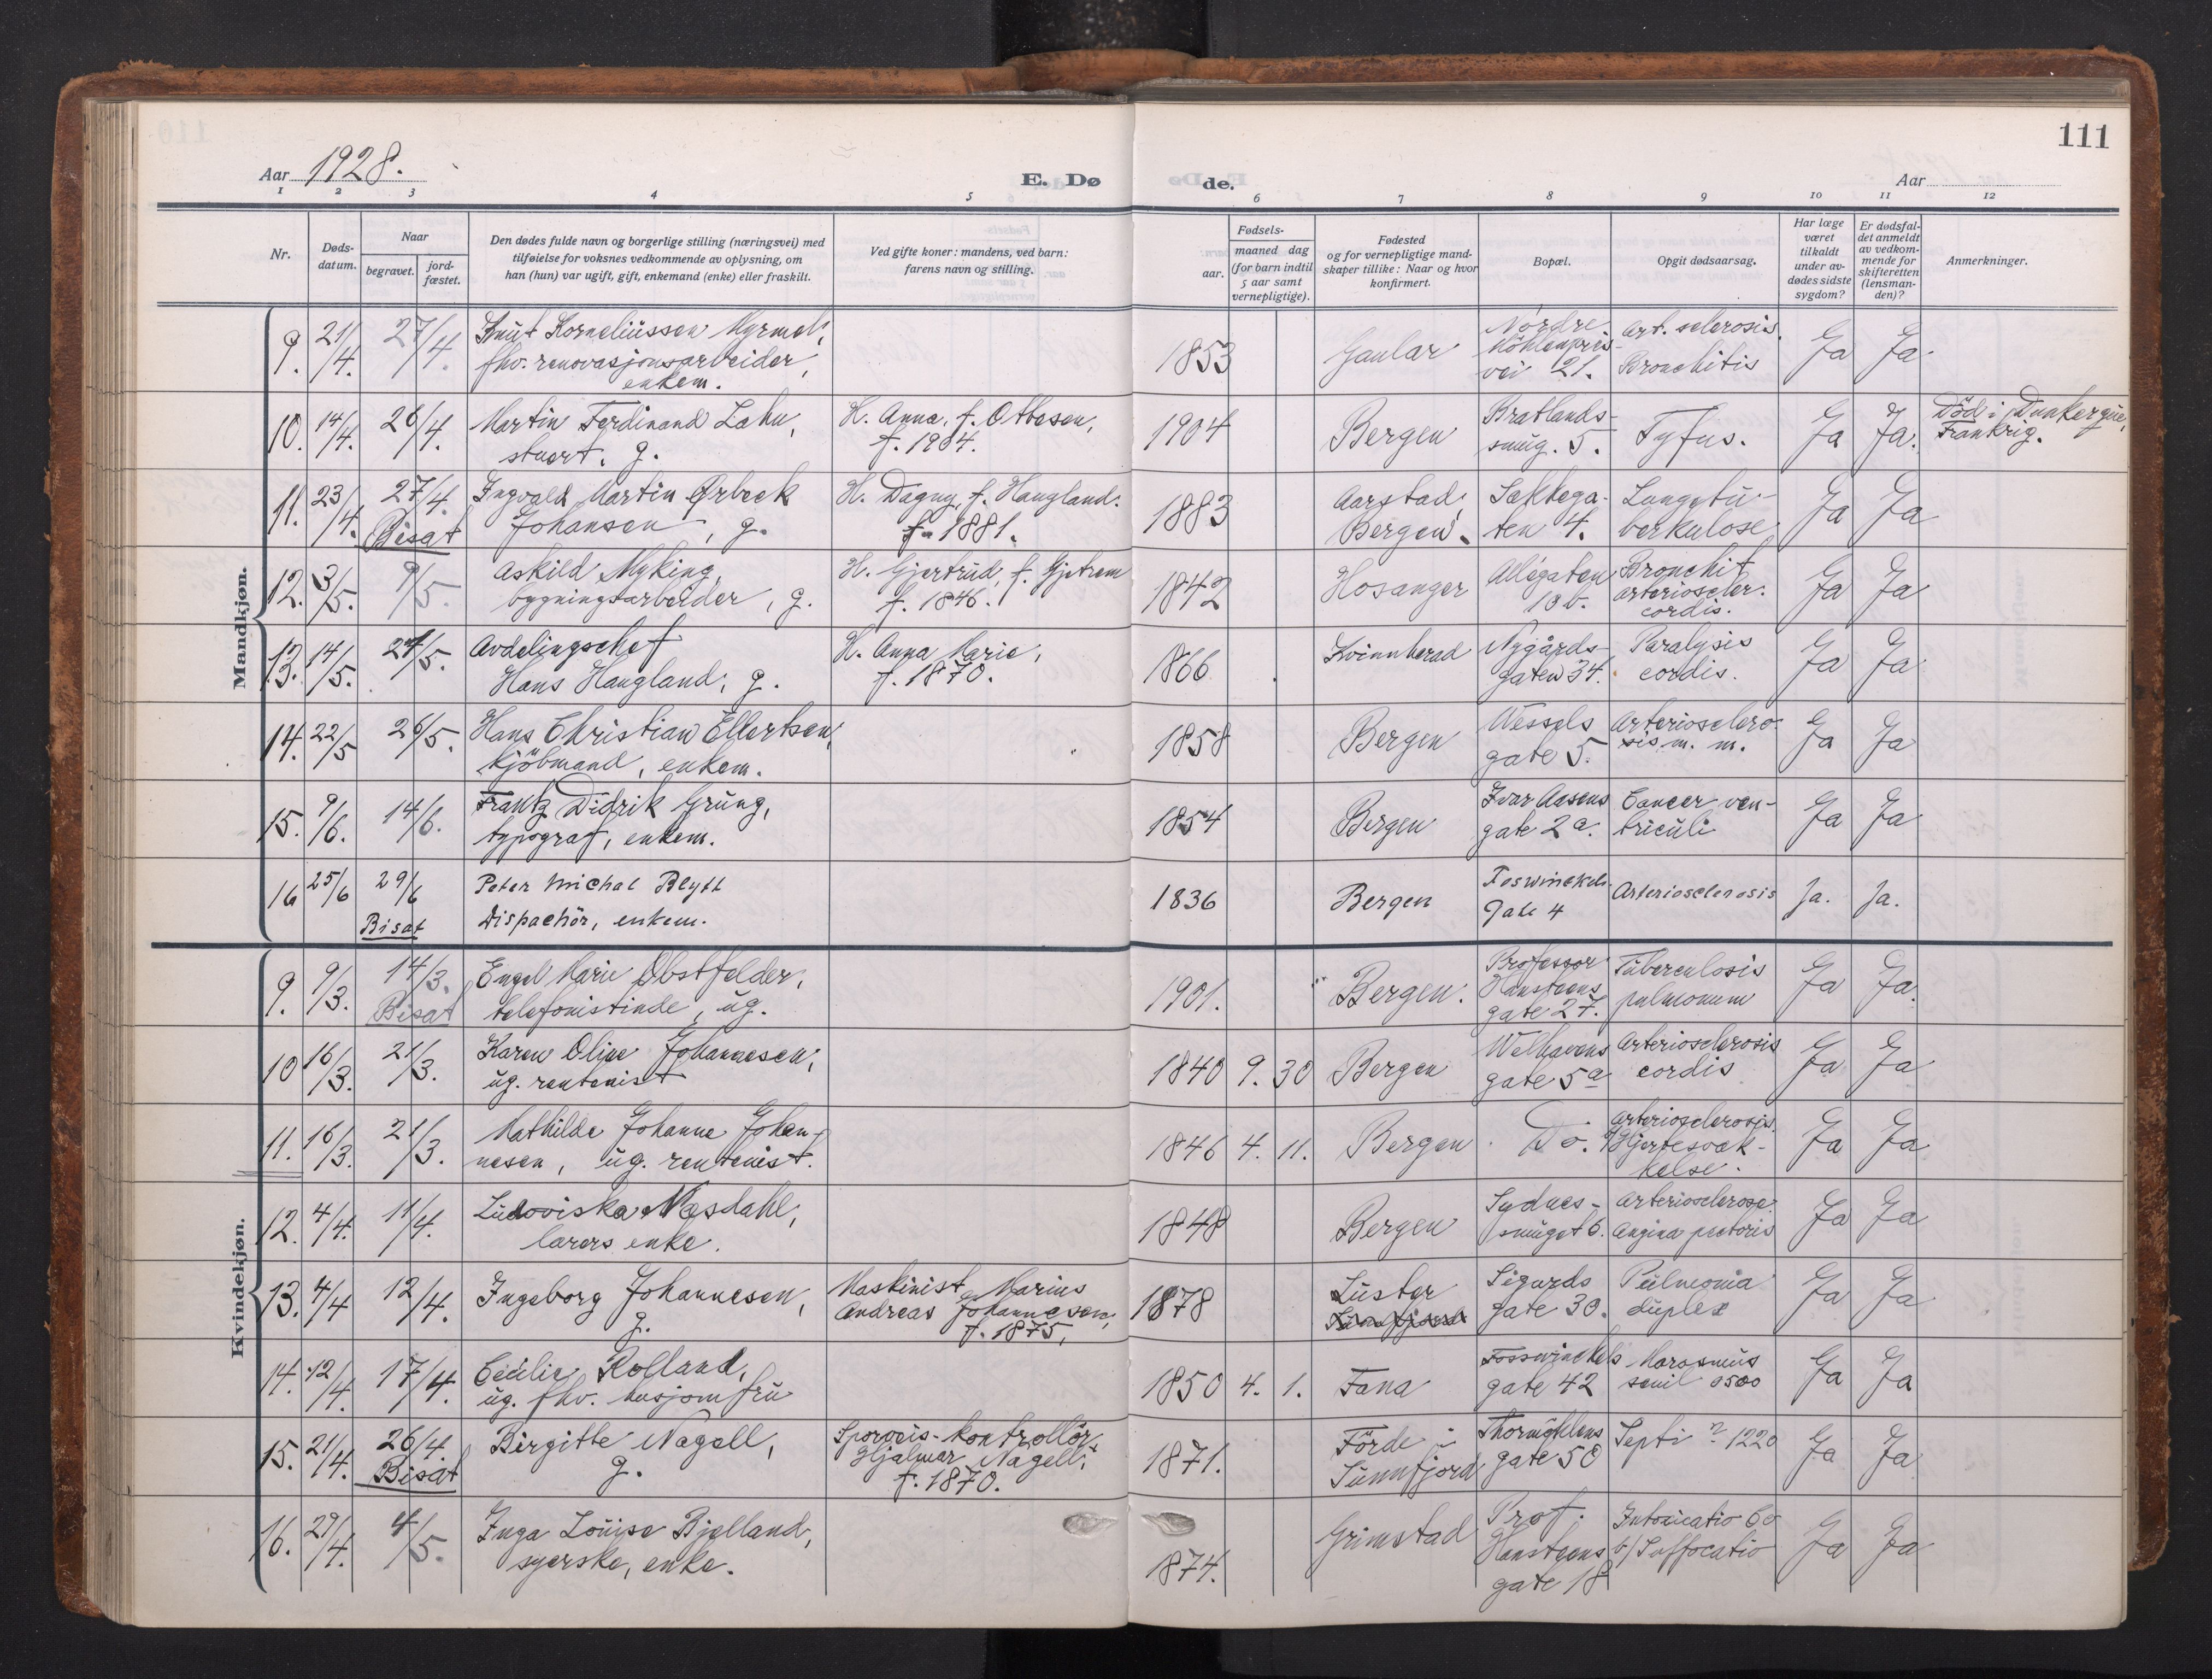 111
Aar 1928.
E. Døde.
Aar
1 2 3 4 5 6 7 8 9 10 11 12
Nr.
Døds-
datum.
Naar
begravet.
jord-
fæstet.
Den dødes fulde navn og borgerlige stilling (næringsvei) med
tilføielse for voksnes vedkommende av oplysning, om
han (hun) var ugift, gift, enkemand (enke) eller fraskilt.
Ved gifte koner: mandens, ved barn:
farens navn og stilling.
Fødsels-
aar.
maaned dag
(for barn indtil
5 aar samt
vernepligtige).
Fødested
og for vernepligtige mand-
skaper tillike: Naar og hvor
konfirmert.
Bopæl.
Opgit dødsaarsag.
Har læge
været
tilkaldt
under av-
dødes sidste
sygdom?
Er dødsfal-
det anmeldt
av vedkom-
mende for
skifteretten
(lensman-
den)?
Anmerkninger.
Mandkjøn.
9. 21/4. 27/4. Knut Korneliussen Myrmel, 1853 Gaular Nordre Art. sclerosis. Ja Ja
fhv. renovasjonsarbeider, Möhlenpris- Bronchitis
enkem. vei 21.
10. 14/4. 26/4. Martin Ferdinand Lahn, H. Anna, f. Ottesen, 1904 Bergen Bratlands- Tyfus. Ja Ja. Död i Dunkerque,
stuert. g. f. 1904. smug. 5. Frankrig.
11. 23/4. 27/4. Ingvald Martin Ørbeck H. Dagny, f. Haugland. 1883 Aarstad, Sekkega- Lungetu- Ja Ja
Bisat Johansen, g. f. 1881. Bergen. ten 4. berkulose
12. 3/5. 9/5. Askild Myking, H. Gjertrud, f. Gjetrem 1842 Hosanger Allégaten Bronchit Ja Ja
bygningsarbeider, g. f. 1846. 10b. arterioscler.
cordis.
13. 14/5. 24/5. Avdelingschef H. Anna Marie, 1866 Kvinnherad Nygårds- Paralysis Ja Ja
Hans Haugland, g. f. 1870. gaten 34. cordis.
14. 22/5 26/5. Hans Christian Ellertsen, 1858 Bergen Wessels Arteriosclero- Ja Ja
kjöbmand, enkem. gate 5. sis m. m.
15. 9/6. 14/6. Frantz Didrik Grung, 1854 Bergen Ivar Aasens Cancer ven- Ja Ja
typograf, enkem. gate 2a. triculi
16 25/6 29/6 Peter Michal Blytt 1836 Bergen Foswinckels Arteriosclerosis Ja. Ja.
Bisat Dispachör, enkem. Gate 4
Kvindekjøn.
9. 9/3. 14/3. Engel Marie Obstfelder, 1901. Bergen. Professor Tuberculosis Ja Ja.
Bisat telefonistinde, ug. Hansteens pulmonum
gate 27.
10 16/3. 21/3. Karen Oline Johannesen, 1840 9. 30 Bergen Welhavens Arteriosclerosis Ja Ja
ug. rentenist gate 5a cordis
11. 16/3. 21/3. Mathilde Johanne Johan- 1846 4. 11. Bergen Do. Arteriosclerosis. Ja Ja
nesen, ug. rentenist. Hjertesvæk-
kelse.
12. 4/4. 11/4. Ludoviska Næsdahl, 1848 Bergen Sydnes- Arteriosclerose. Ja Ja
lærers enke. smuget 6. Angina pectoris
13. 4/4 12/4. Ingeborg Johannesen, Maskinist Marius 1878 Luster Sigurds Pulmonia Ja Ja
g. Andreas Johannesen, gate 30. duplex
f. 1875,
14. 12/4. 17/4. Cecilie Rolland, 1850 4. 1. Fana Fosswinckels Marasmus Ja Ja
ug. fhv. husjomfru gate 42 senil 0500
15. 21/4. 26/4. Birgitte Nagell, Sporveis-kontrollör 1871. Förde i Thormøhlens Septi 1220 Ja Ja
Bisat g. Hjalmar Nagell, Sunnfjord gate 50
f. 1870.
16. 29/4. 4/5. Inga Louise Bjelland, 1874. Grimstad Prof. Intoxicatio Co Ja Ja
syerske, enke. Hansteens Suffocatio
gate 18